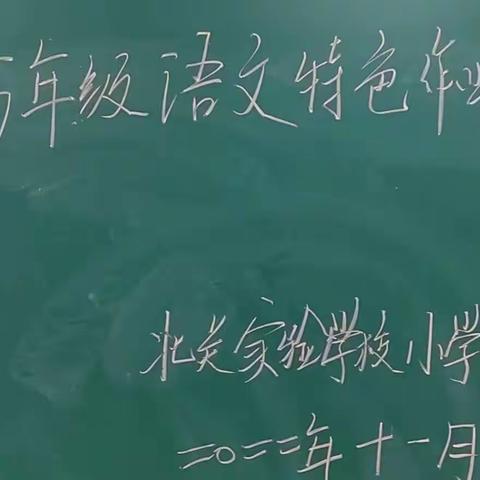 年级语文特色作业
北关实验学校小学
二〇二二年十一月